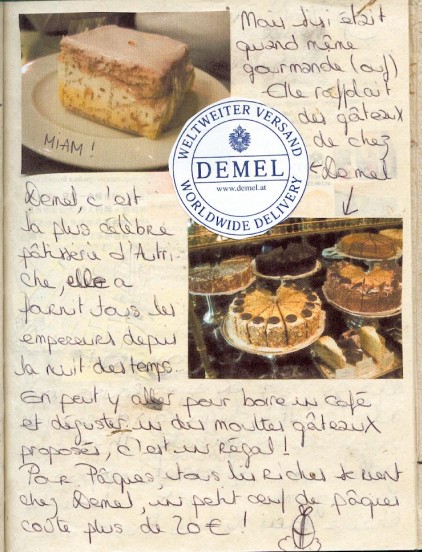 Mais Sisi était
quand même
gourmande (ouf)
Elle raffolait
des gâteaux
de chez
Demel
MIAM !
WELTWEITER VERSAND
DEMEL
www.demel.at
WORLDWIDE DELIVERY
Demel, c'est
la plus célèbre
pâtisserie d'Autri-
che, elle a
fournit tous les
empereurs depuis
la nuit des temps.
En peut y aller pour boire un café
et déguster un des moultes gâteaux
proposés, c'est un régal !
Pour Pâques, tous les riches se ruent
chez Demel, un petit oeuf de pâques
coûte plus de 20 € !